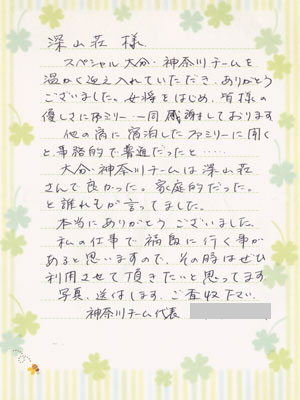 深山荘 様
スペシャル大分・神奈川チームを
温かく迎え入れていただき、ありがとう
ございました。女将をはじめ、皆様の
優しさにファミリー一同感謝しております
他の宿に宿泊したファミリーに聞く
と、事務的で普通だったと・・・・・
大分・神奈川チームは深山荘
さんで良かった。家庭的だった。
と誰れもが言ってました。
本当にありがとうございました。
私の仕事で福島に行く事が
あると思いますので、その時はぜひ
利用させて頂きたいと思ってます
写真、送付します、ご査収下さい。
神奈川チーム代表